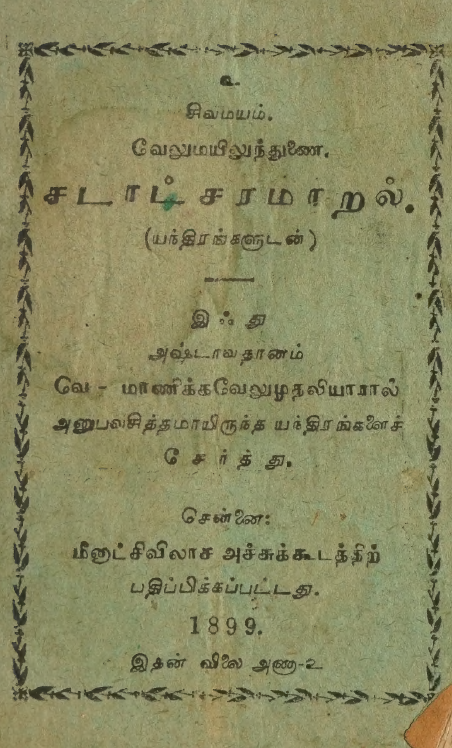 உ
சிவமயம்.
வேலுமயிலுந்துணை.
சடாட்சரமாறல்.
(யந்திரங்களுடன்)
இஃது
அஷ்டாவதானம்
வே - மாணிக்கவேலுமுதலியாரால்
அனுபவசித்தமாயிருந்த யந்திரங்களைச்
சேர்த்து.
சென்னை:
மீனாட்சிவிலாச அச்சுக்கூடத்திற்
பதிப்பிக்கப்பட்டது.
1899.
இதன் விலை அணா-உ